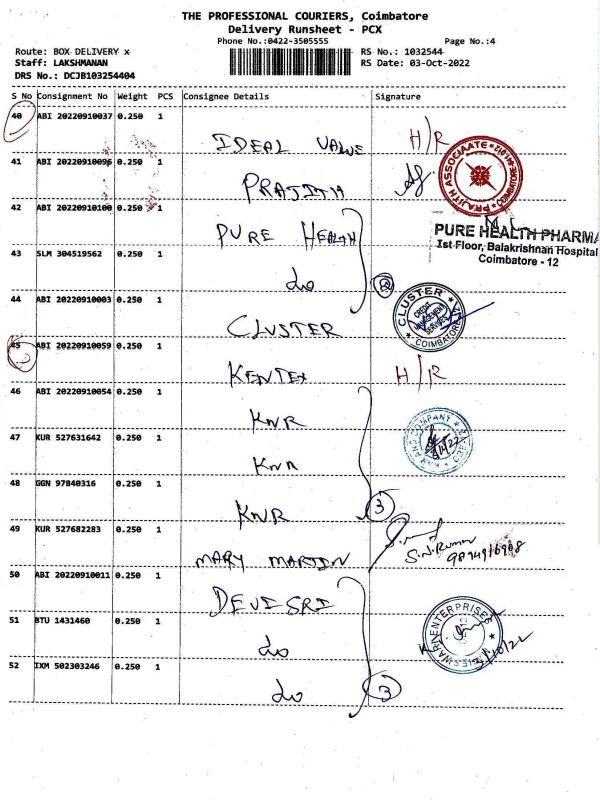 THE PROFESSIONAL COURIERS, Coimbatore
Delivery Runsheet - PCX
Phone No.:0422-3505555 Page No.:4
Route: BOX DELIVERY x RS No.: 1032544
Staff: LAKSHMANAN RS Date: 03-Oct-2022
DRS No.: DCJB103254404
S No Consignment No Weight PCS Consignee Details Signature
40 ABI 20220910037 0.250 1
IDEAL VALUE H/R
41 ABI 20220910096 0.250 1
PRAJITH
PRAJITH ASSOCIAATE COIMBATORE
42 ABI 20220910100 0.250 1
PURE HEALTH
PURE HEALTH PHARMA
Ist Floor, Balakrishnan Hospital
Coimbatore - 12
43 SLM 304519562 0.250 1
do 2
44 ABI 20220910003 0.250 1
CLUSTER
CLUSTER CREDIT MANAGEMENT SERVICES COIMBATORE
45 ABI 20220910059 0.250 1
KENTEX H/R
46 ABI 20220910054 0.250 1
KNR
47 KUR 527631642 0.250 1
KNR
48 GGN 97840316 0.250 1
KNR 3
49 KUR 527682283 0.250 1
MARY MARTIN
S.N.Kumar
50 ABI 20220910011 0.250 1
DEVISRI
ENTERPRISES
51 BTU 1431460 0.250 1
do
3/10/22
52 IXM 502303246 0.250 1
do 3